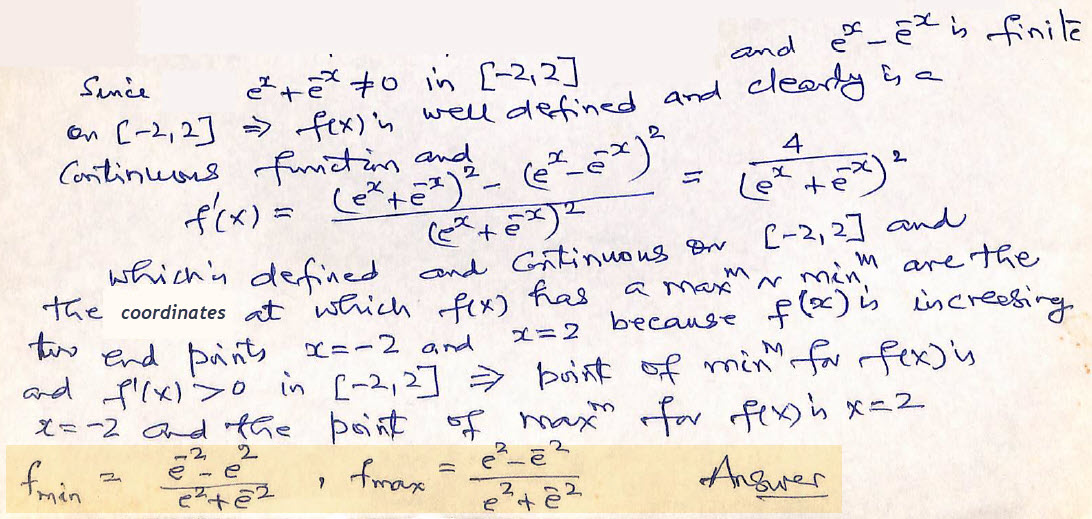 Since e^x + e^-x ≠ 0 in [-2,2] and e^x - e^-x is finite
on [-2,2] ⇒ f(x) is well defined and clearly is a
Continuous function and
f'(x) = ((e^x + e^-x)^2 - (e^x - e^-x)^2) / (e^x + e^-x)^2 = 4 / (e^x + e^-x)^2
which is defined and Continuous on [-2,2] and
the coordinates at which f(x) has a max^m or min^m are the
two end points x=-2 and x=2 because f(x) is increesing
and f'(x) > 0 in [-2,2] ⇒ point of min^m for f(x) is
x=-2 and the point of max^m for f(x) is x=2
f_min = (e^-2 - e^2) / (e^2 + e^-2) , f_max = (e^2 - e^-2) / (e^2 + e^-2) Answer